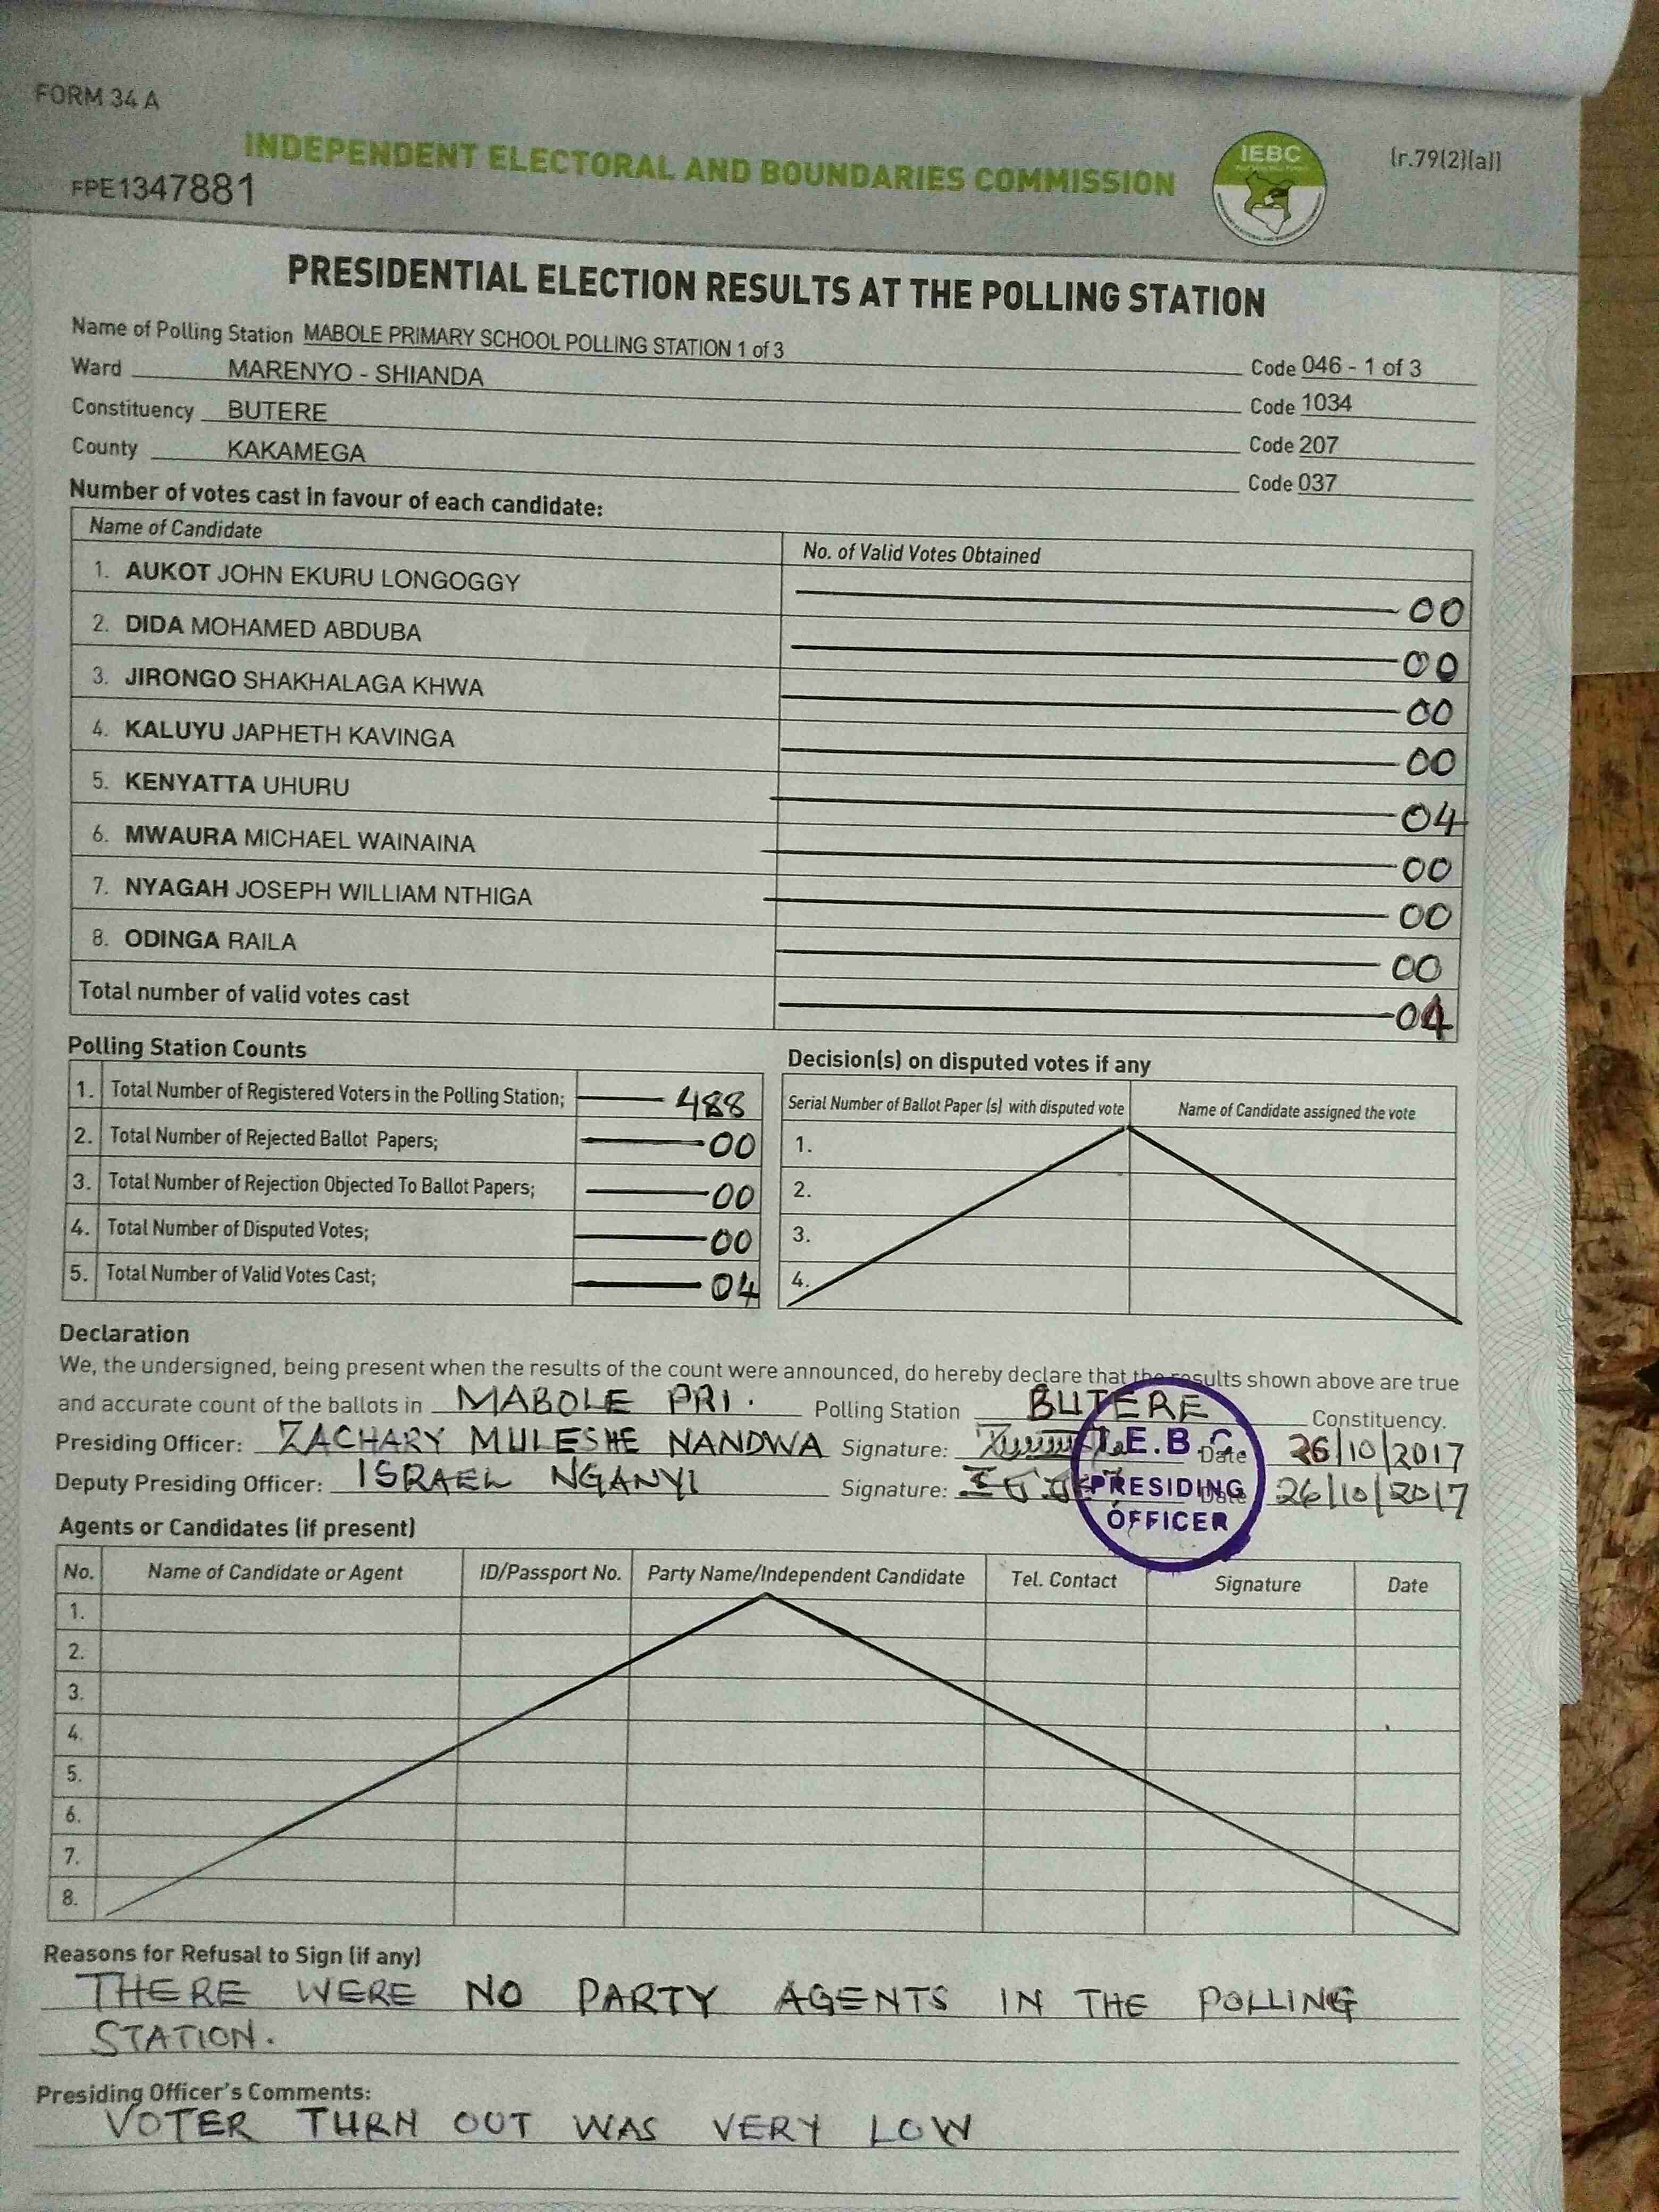 FORM 34 A
INDEPENDENT ELECTORAL AND BOUNDARIES COMMISSION
IEBC
(r.79(2)(a))
FPE1347881
PRESIDENTIAL ELECTION RESULTS AT THE POLLING STATION
Name of Polling Station MABOLE PRIMARY SCHOOL POLLING STATION 1 of 3 Code 046 - 1 of 3
Ward MARENYO - SHIANDA Code 1034
Constituency BUTERE Code 207
County KAKAMEGA Code 037
Number of votes cast in favour of each candidate:
Name of Candidate No. of Valid Votes Obtained
1. AUKOT JOHN EKURU LONGOGGY 00
2. DIDA MOHAMED ABDUBA 00
3. JIRONGO SHAKHALAGA KHWA 00
4. KALUYU JAPHETH KAVINGA 00
5. KENYATTA UHURU 04
6. MWAURA MICHAEL WAINAINA 00
7. NYAGAH JOSEPH WILLIAM NTHIGA 00
8. ODINGA RAILA 00
Total number of valid votes cast 04
Polling Station Counts
1. Total Number of Registered Voters in the Polling Station; 488
2. Total Number of Rejected Ballot Papers; 00
3. Total Number of Rejection Objected To Ballot Papers; 00
4. Total Number of Disputed Votes; 00
5. Total Number of Valid Votes Cast; 04
Decision(s) on disputed votes if any
Serial Number of Ballot Paper (s) with disputed vote Name of Candidate assigned the vote
1.
2.
3.
4.
Declaration
We, the undersigned, being present when the results of the count were announced, do hereby declare that the results shown above are true
and accurate count of the ballots in MABOLE PRI. Polling Station BUTERE Constituency.
Presiding Officer: ZACHARY MULESHE NANDWA Signature: Date 26/10/2017
Deputy Presiding Officer: ISRAEL NGANYI Signature: Date 26/10/2017
I.E.B.C
PRESIDING
OFFICER
Agents or Candidates (if present)
No. Name of Candidate or Agent ID/Passport No. Party Name/Independent Candidate Tel. Contact Signature Date
1.
2.
3.
4.
5.
6.
7.
8.
Reasons for Refusal to Sign (if any)
THERE WERE NO PARTY AGENTS IN THE POLLING
STATION.
Presiding Officer's Comments:
VOTER TURN OUT WAS VERY LOW